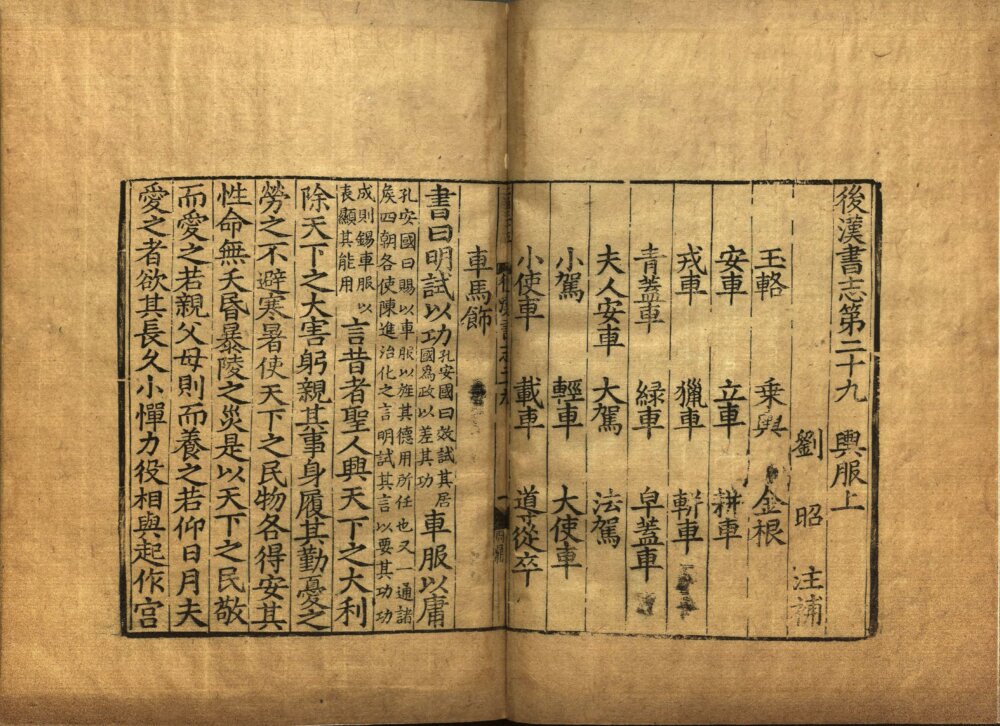 後漢書志第二十九 輿服上
劉 昭 注補
玉輅 乘輿 金根
安車 立車 耕車
戎車 獵車 軿車
青蓋車 綠車 皁蓋車
夫人安車 大駕 法駕
小駕 輕車 大使車
小使車 載車 導從卒
車馬飾
書曰明試以功孔安國曰效試其居國為政以差其功車服以庸
孔安國曰賜以車服以旌其德用所任也又一通諸
侯四朝各使陳進治化之言明試其言以要其功功
成則錫車服以表顯其能用言昔者聖人興天下之大利
除天下之大害躬親其事身履其勤憂之
勞之不避寒暑使天下之民物各得安其
性命無夭昏暴陵之災是以天下之民敬
而愛之若親父母則而養之若仰日月夫
愛之者欲其長久不憚力役相與起作宮